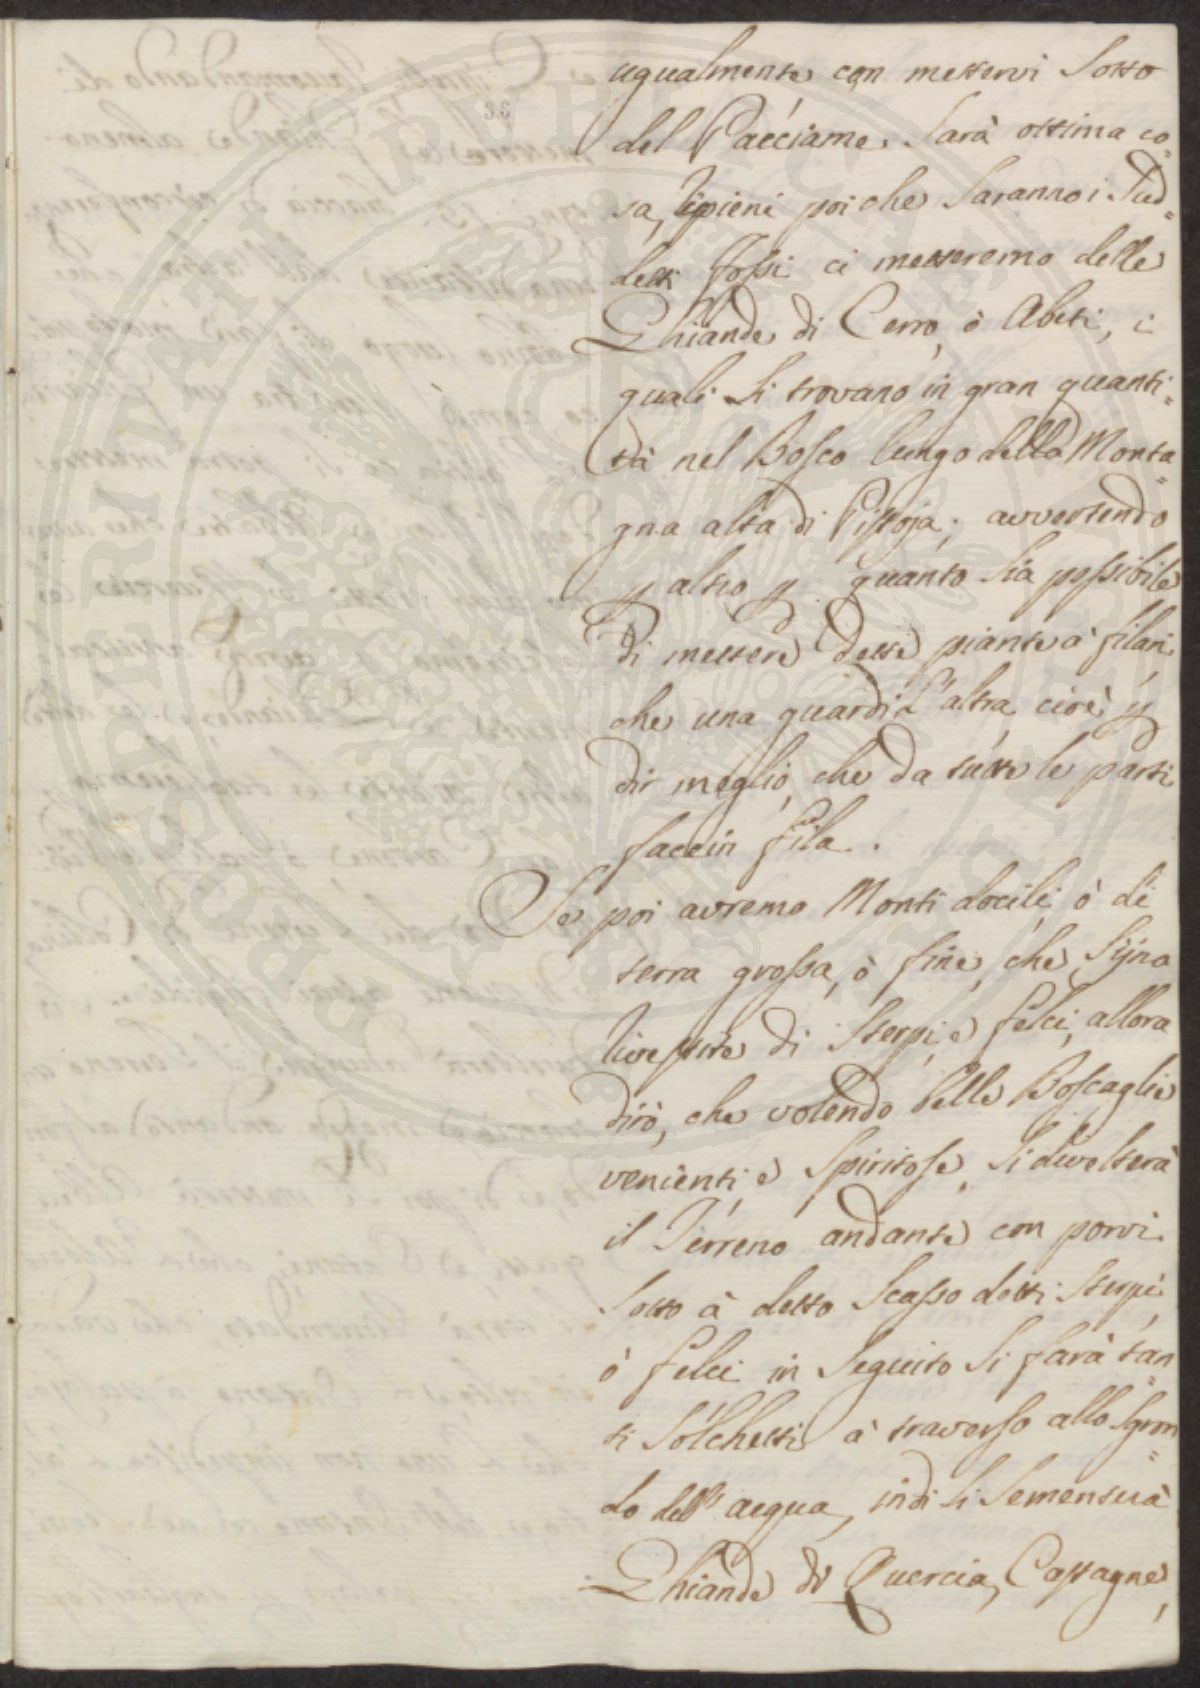 ugualmente con mettervi Sotto
del Pacciame. Sarà ottima co=
sa, Ripieni poi che Saranno i Sud=
detti fossi ci metteremo delle
Ghiande di Cerro, ò Abeti, i
quali Si trovano in gran quanti=
tà nel Bosco lungo della Monta=
gna alta di Pistoja; avvertendo
p altro p quanto Sia possibile
di mettere dette piante à filari
che una guardi L'altra, cioè p
dir meglio, che da tutte le parti
faccin fila.
Se poi avremo Monti docili, ò di
terra grossa, ò fine, che Sijno
Rivestite di Sterpi, e felci, allora
dirò, che volendo belle Boscaglie
venienti, e Spiritose, Si divelterà
il Terreno andante, con porvi
Sotto à detto Scasso detti Sterpi,
ò felci in Seguito Si farà tan
ti Solchetti à traverso allo Sgron=
do dell'acqua, indi Si Sementerà
Ghiande di Quercia, Castagne,
36
PROSPERITATI PVBLICAE